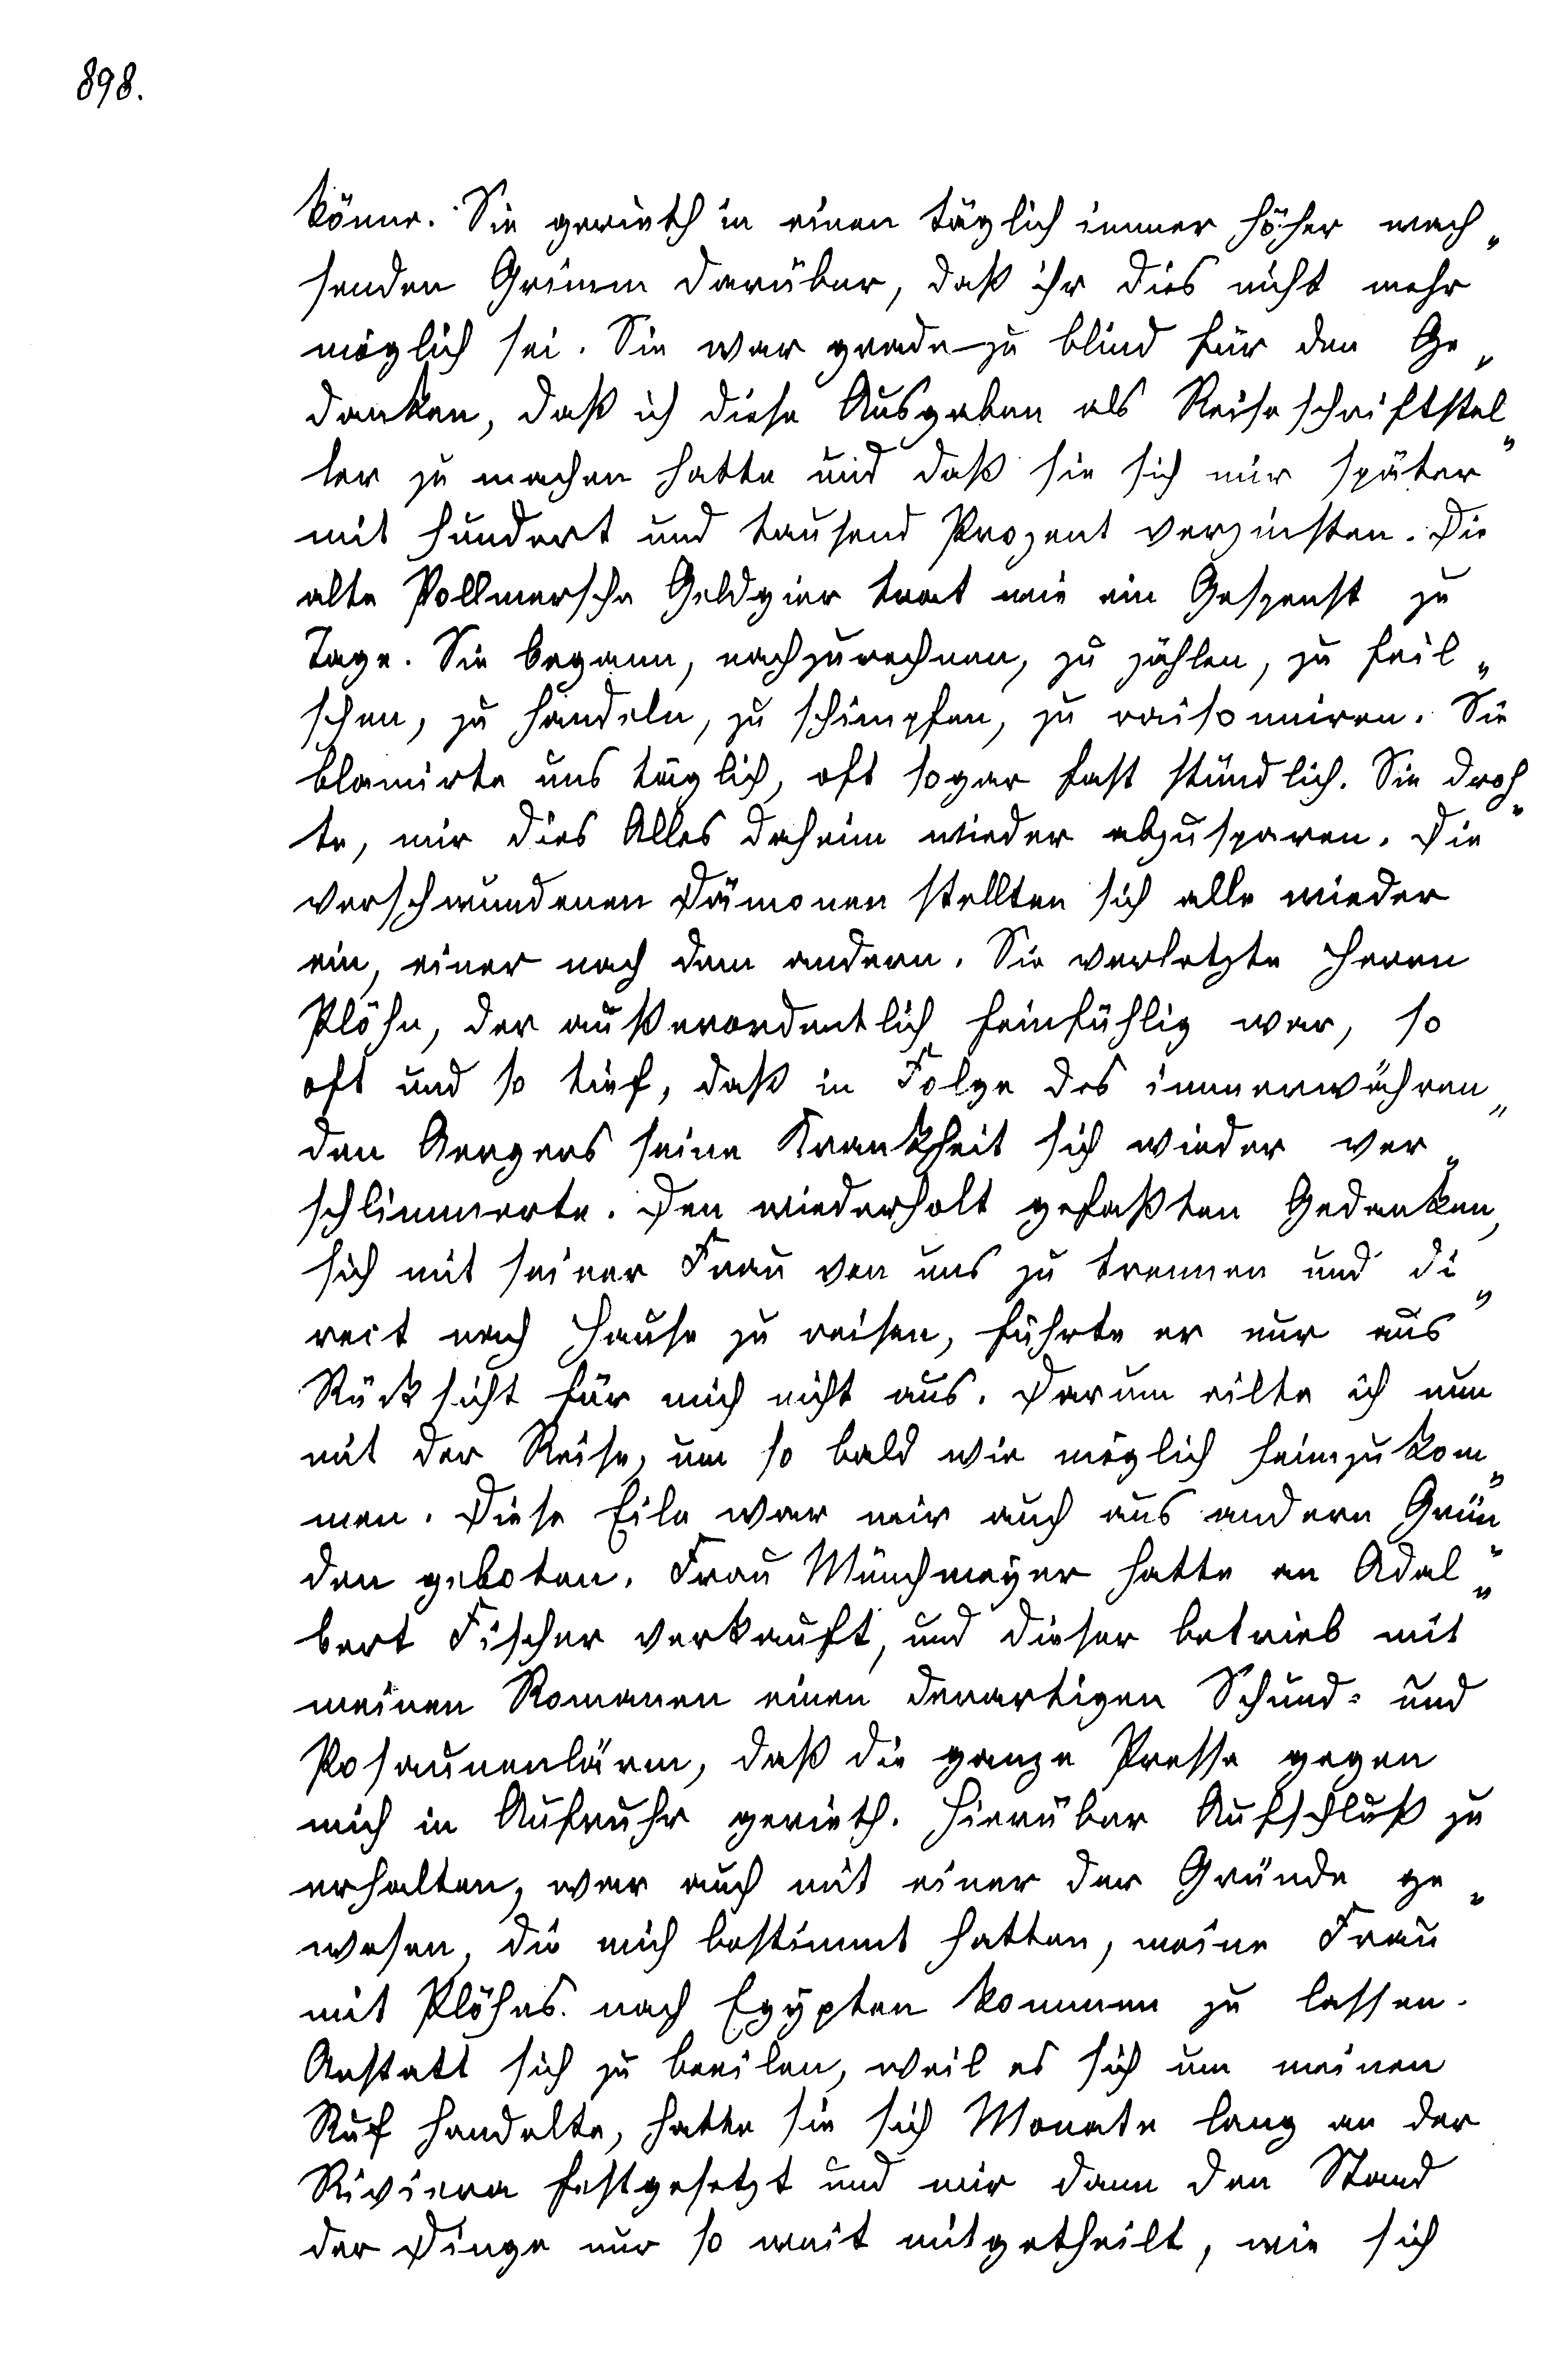 898.
könne. Sie gerieth in einen täglich immer höher wach„
senden Grimm darüber, daß ihr dies nicht mehr
möglich sei. Sie war gradezu blind für den Ge„
danken, daß ich diese Ausgaben als Reiseschriftstel„
ler zu machen hatte und daß sie sich mir später
mit hundert und tausend Prozent verzinsten. Die
alte Pollmersche Geldgier trat wie ein Gespenst zu
Tage. Sie begann, nachzurechnen, zu zählen, zu feil„
schen, zu handeln, zu schimpfen, zu raisonniren. Sie
blamirte uns täglich, oft sogar fast stündlich. Sie droh„
te, mir dies Alles daheim wieder abzusparen. Die
verschwundenen Dämonen stellten sich alle wieder
ein, einer nach dem andern. Sie verletzte Herrn
Plöhn, der außerordentlich feinfühlig war, so
oft und so tief, daß in Folge des immerwähren„
den Aergers seine Krankheit sich wieder ver„
schlimmerte. Den wiederholt gefaßten Gedanken,
sich mit seiner Frau von uns zu trennen und di„
rect nach Hause zu reisen, führte er nur aus
Rücksicht für mich nicht aus. Darum eilte ich nun
mit der Reise, um so bald wie möglich heimzukom„
men. Diese Eile war mir auch aus andern Grün„
den geboten. Frau Münchmeyer hatte an Adal„
bert Fischer verkauft, und dieser betrieb mit
meinen Romanen einen derartigen Schund= und
Posaunenlärm, daß die ganze Presse gegen
mich in Aufruhr gerieth. Hierüber Aufschluß zu
erhalten, war auch mit einer der Gründe ge„
wesen, die mich bestimmt hatten, meine Frau
mit Plöhns nach Egypten kommen zu lassen.
Anstatt sich zu beeilen, weil es sich um meinen
Ruf handelte, hatte sie sich Monate lang an der
Riviera festgesetzt und mir dann den Stand
der Dinge nur so weit mitgetheilt, wie sich